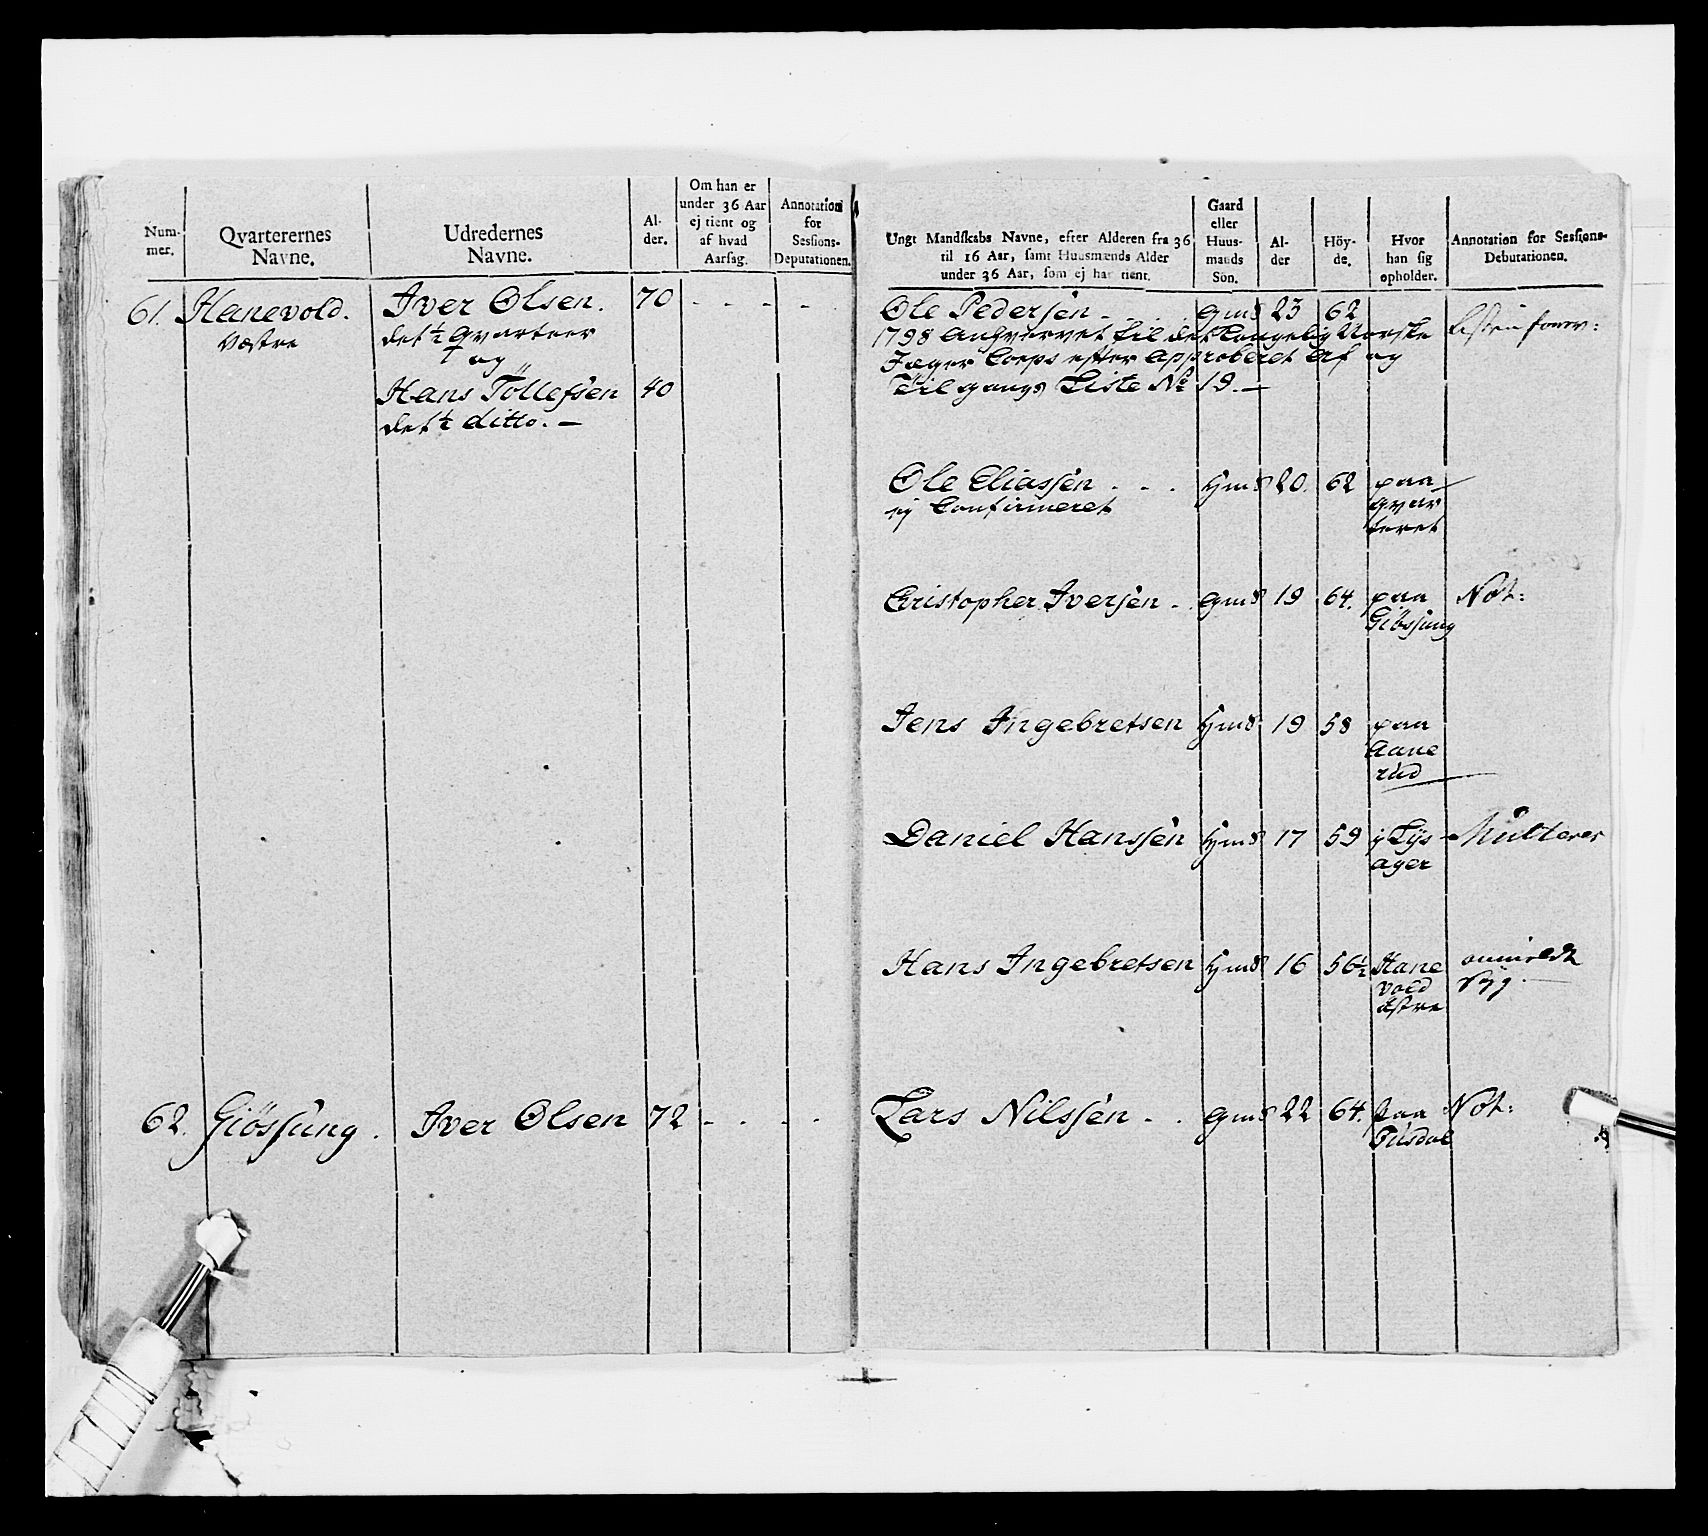 Num-
mer.
Qvarterernes
Navne.
Udredernes
Navne.
Al-
der.
Om han er
under 36 Aar
ej tient og
af hvad
Aarsag.
Annotation
for
Sessions-
Deputationen.
61. Hanevold.
Væstre
Iver Olsen. 70 - - - -
det ½ Qvarteer
og
Hans Tollefsen 40
det ½ ditto. -
62. Giössung. Iver Olsen 72 - - - -
Ungt Mandskabs Navne, efter Alderen fra 36
til 16 Aar, samt Huusmænds Alder
under 36 Aar, som ej har tient.
Gaard
eller
Huus-
mands
Søn.
Al-
der
Höy-
de.
Hvor
han sig
opholder.
Annotation for Sessions-
Deputationen.
Ole Pedersen - gmS 23 62
1798 anhvervet til det Kongelig Norske
Jæger Corps efter approberet Af og
Tilgangs Liste No 19. -
Ole Eliassen - - - HmS 20. 62 paa
ej Confirmeret qvar
teret
Christopher Iversen - gmS 19 64. paa Not:
Giössung
Jens Ingebretsen HmS 19 58 paa
Aane
rud
Daniel Hanssen HmS 17 59 i Lys-
ager
Hans Ingebretsen HmS 16 56½ Hane
vold
østre
Lars Nilssen - - gmS 22 64. paa Not: